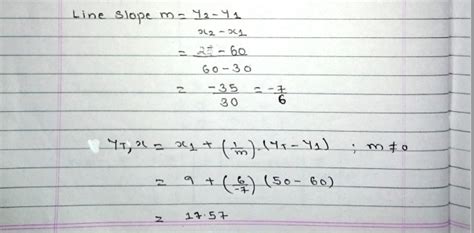 Line slope m = y2 - y1
x2 - x1
= 25 - 60
60 - 30
= -35 = -7
30 6
yT, x = x1 + (1/m) · (yT - y1) ; m ≠ 0
= 9 + (6/-7) (50 - 60)
= 17.57